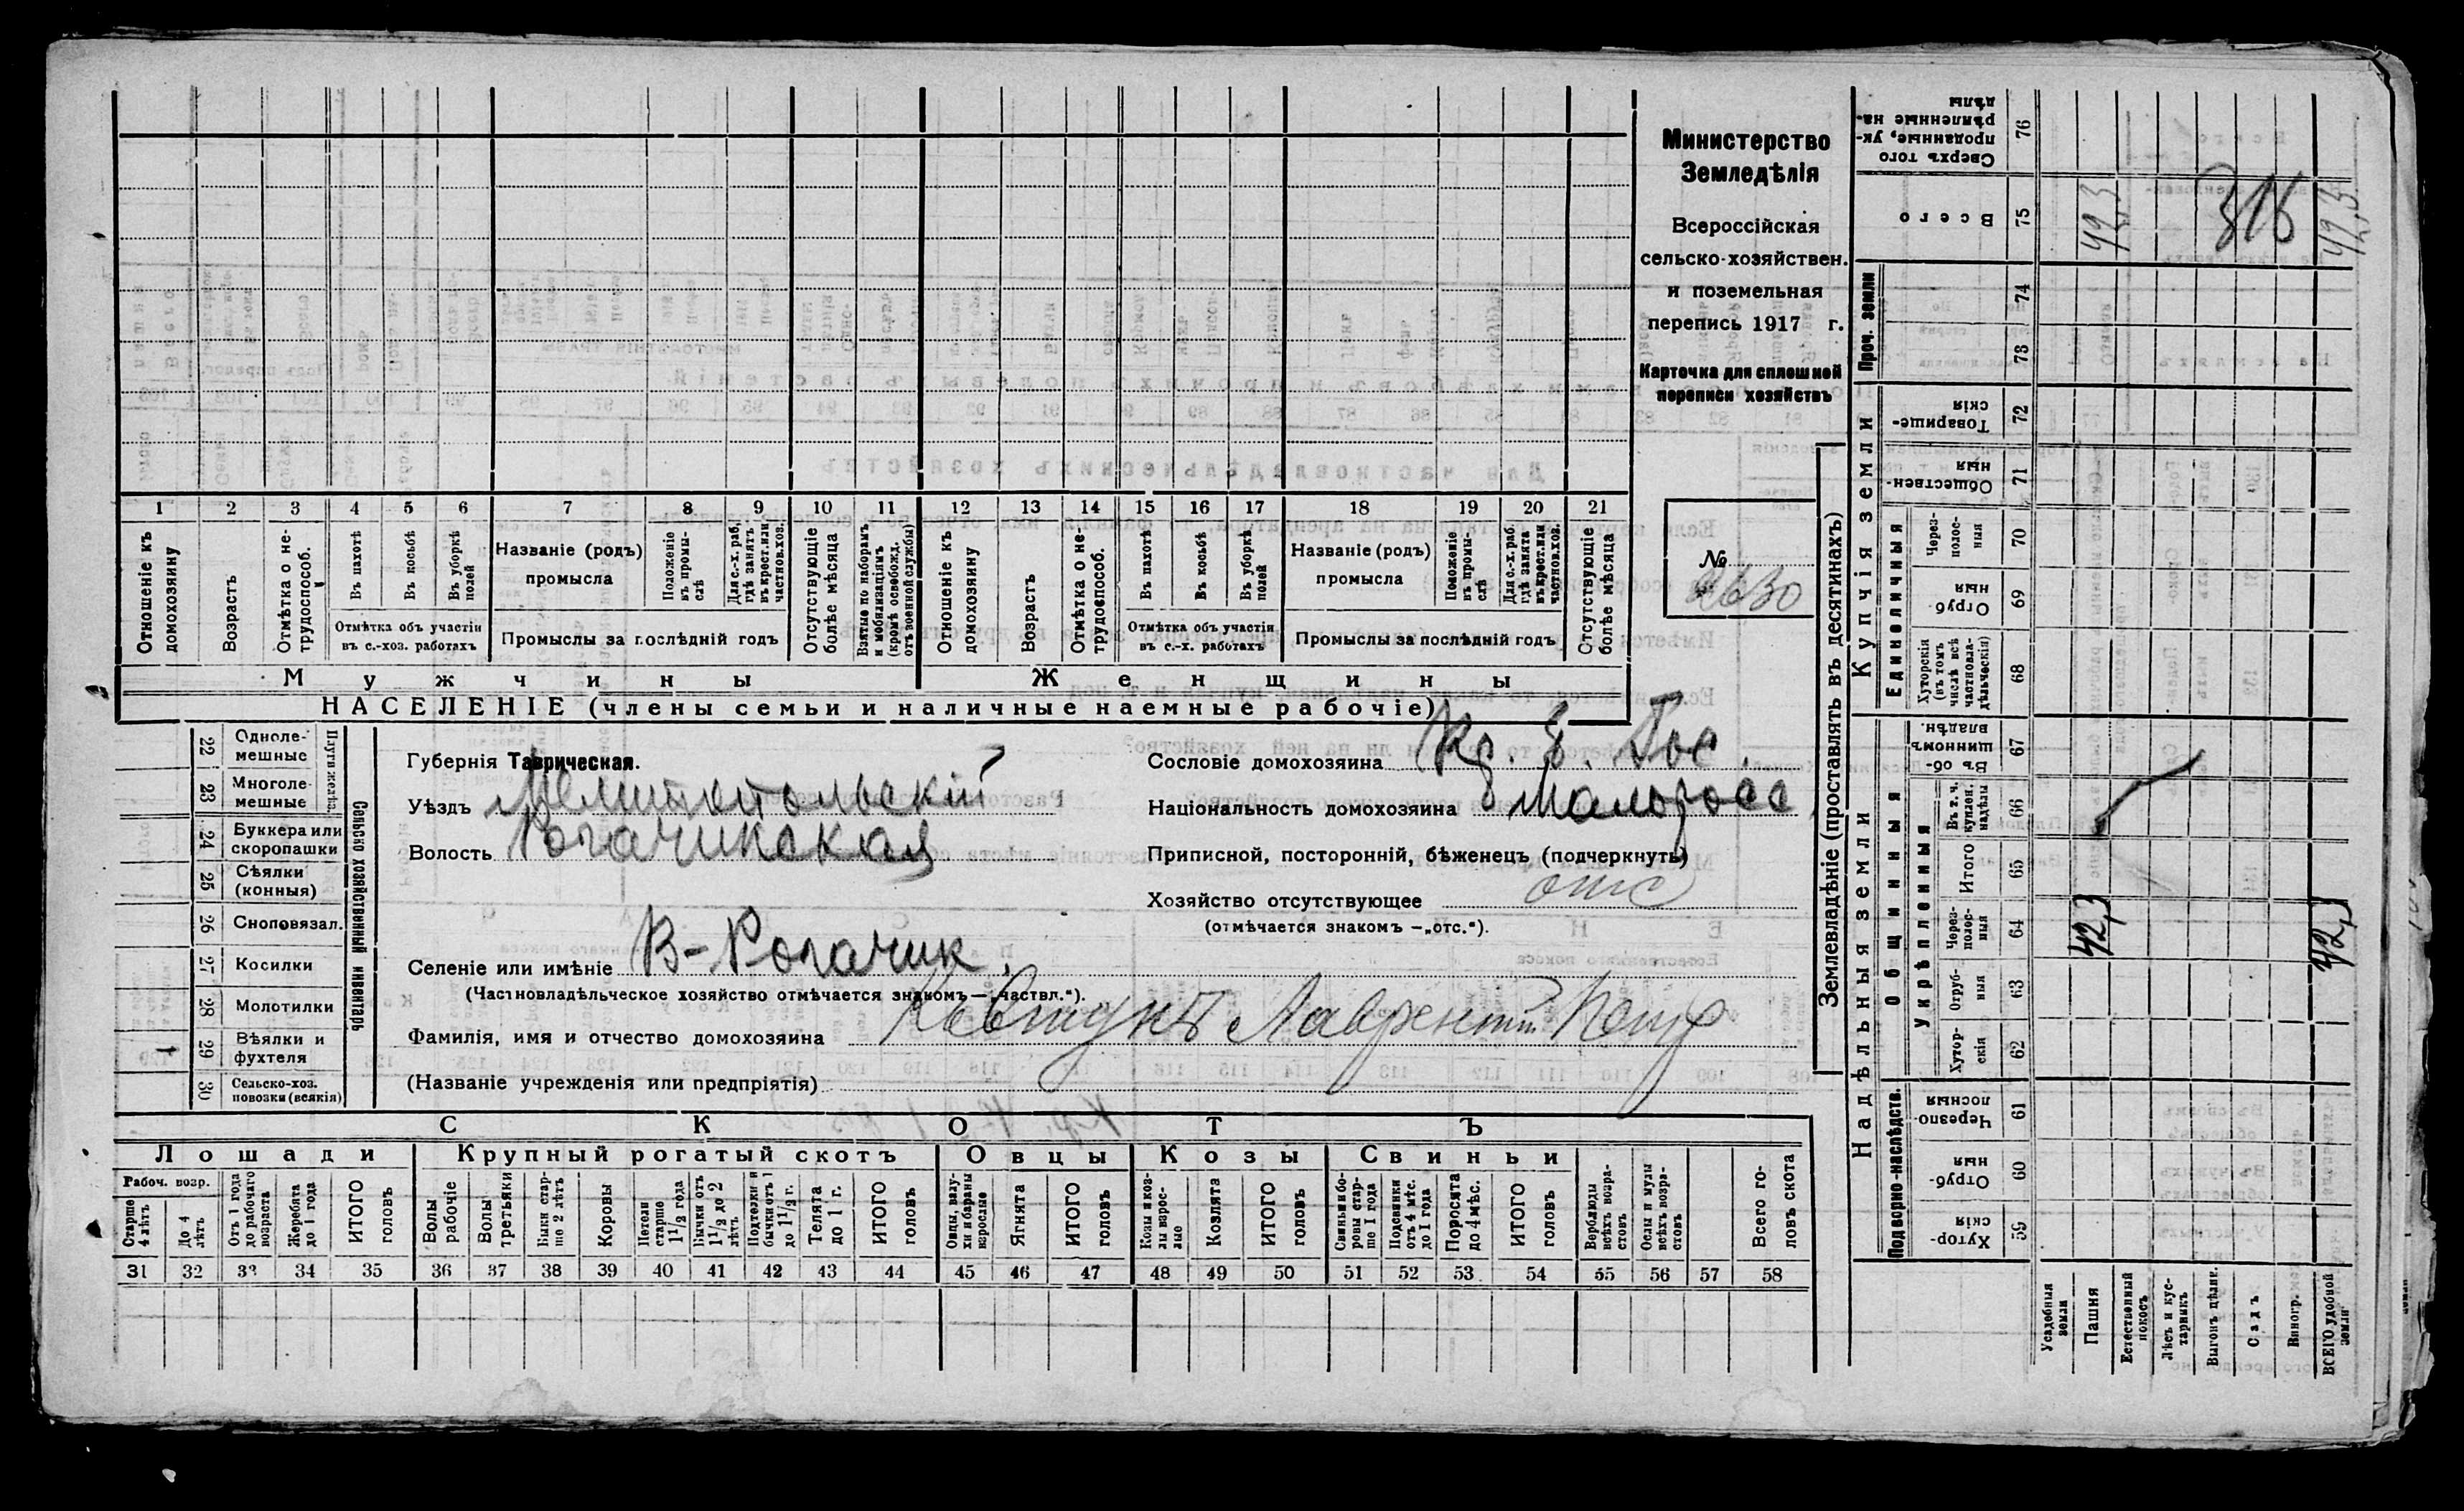 Министерство
Земледѣлія
Всероссійская
сельско-хозяйствен.
и поземельная
перепись 1917 г.
Карточка для сплошной
переписи хозяйствъ
№
2630
1 2 3 4 5 6 7 8 9 10 11 12 13 14 15 16 17 18 19 20 21
Отношеніе къ домохозяину
Возрастъ
Отмѣтка о не-трудоспособ.
Въ пахотѣ
Въ косьбѣ
Въ уборкѣ полей
Отмѣтка объ участіи въ с.-хоз. работахъ
Названіе (родъ) промысла
Положеніе въ промы-слѣ
Для с.-х. раб. гдѣ занятъ въ крест. или частнов. хоз.
Промыслы за послѣдній годъ
Отсутствующіе болѣе мѣсяца
Взятые по наборамъ и мобилизаціямъ (кромѣ освобожд. отъ военной службы)
Отношеніе къ домохозяину
Возрастъ
Отмѣтка о не-трудоспособ.
Въ пахотѣ
Въ косьбѣ
Въ уборкѣ полей
Отмѣтка объ участіи въ с.-х. работахъ
Названіе (родъ) промысла
Положеніе въ промы-слѣ
Для с.-х. раб. гдѣ занята въ крест. или частнов. хоз.
Промыслы за послѣдній годъ
Отсутствующіе болѣе мѣсяца
Мужчины Женщины
НАСЕЛЕНІЕ (члены семьи и наличные наемные рабочіе)
22 Одноле-мешные
23 Многоле-мешные
24 Буккера или скоропашки
25 Сѣялки (конныя)
26 Сноповязал.
27 Косилки
28 Молотилки
29 Вѣялки и фухтеля
1
30 Сельско-хоз. повозки (всякія)
Сельско хозяйственный инвентарь
Губернія Таврическая.
Уѣздъ Мелитопольскій
Волость Рогачинская
Селеніе или имѣніе В-Рогачик.
(Частновладѣльческое хозяйство отмѣчается знакомъ—„частвл.“).
Фамилія, имя и отчество домохозяина Лаврентій Петр
(Названіе учрежденія или предпріятія)
Сословіе домохозяина Кр. б. Гос.
Національность домохозяина Малоросс
Приписной, посторонній, бѣженецъ (подчеркнуть)
Хозяйство отсутствующее отс
(отмѣчается знакомъ —„отс.“).
СКОТЪ
Лошади Крупный рогатый скотъ Овцы Козы Свиньи
Рабоч. возр.
Старше 4 лѣтъ
До 4 лѣтъ
Отъ 1 года до рабочаго возраста
Жеребята до 1 года
ИТОГО головъ
Волы рабочіе
Волы третьяки
Быки стар-ше 2 лѣтъ
Коровы
Нетели старше 1 1/2 года
Бычки отъ 1 1/2 до 2 лѣтъ
Подтелки и бычки отъ 1 до 1 1/2 г.
Телята до 1 г.
ИТОГО головъ
Овцы, валу-хи и бараны взрослые
Ягнята
ИТОГО головъ
Козы и коз-лы взрос-лые
Козлята
ИТОГО головъ
Свиньи и бо-ровы стар-ше 1 года
Подсвинки отъ 4 мѣс. до 1 года
Поросята до 4 мѣс.
ИТОГО головъ
Верблюды всѣхъ возра-стовъ
Ослы и мулы всѣхъ возра-стовъ
Всего го-ловъ скота
31 32 33 34 35 36 37 38 39 40 41 42 43 44 45 46 47 48 49 50 51 52 53 54 55 56 57 58
Землевладѣніе (проставлять въ десятинахъ)
Надѣльныя земли
Купчія земли
Проч. земли
Подворно-наслѣдств.
Общинныя
Укрѣпленныя
Единоличныя
59 Хутор-скія
60 Отруб-ныя
61 Черезпо-лосныя
62 Хутор-скія
63 Отруб-ныя
64 Через-полос-ныя
65 Итого
66 Въ т. ч. куплен. надѣлы
67 Въ об-щинномъ владѣн.
68 Хуторскія (въ томъ числѣ всѣ частновла-дѣльческія)
69 Отруб-ныя
70 Через-полос-ныя
71 Обществен-ныя
72 Товарище-скія
73
74
75 Всего
76 Сверхъ того проданные, ук-рѣпленные на-дѣлы
Усадебныя земли
Пашня
Естественный покосъ
Лѣсъ и кус-тарникъ
Выгонъ дѣлян.
Садъ
Виногр.
ВСЕГО удобной земли
42,3
42,3
42,3
316
42,3